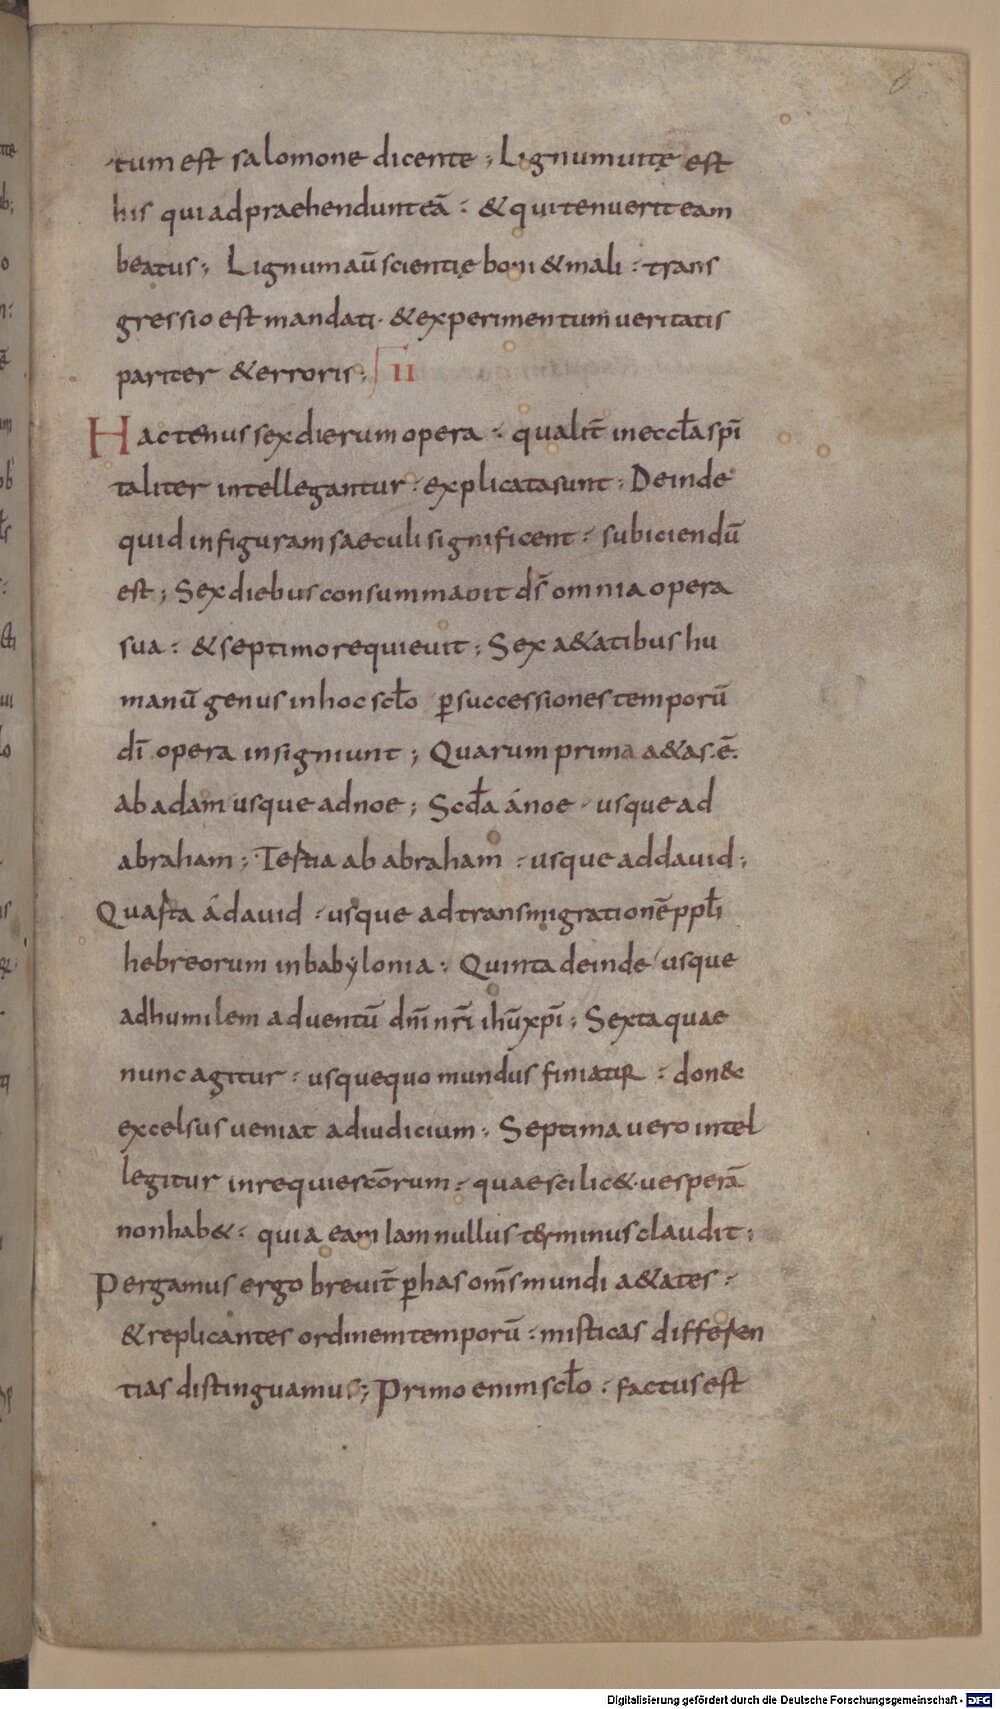 6
tum est salomone dicente; Lignum uitę est
his qui adpraehendunt eā· & qui tenuerit eam
beatus; Lignum aū scientię boni & mali· trans
gressio est mandati· & experimentum ueritatis
pariter & erroris; II
Hactenus sex dierum opera· qualit̄ in eccl̄a spī
taliter intellegantur· explicata sunt; Deinde
quid in figuram saeculi significent· subiciendū
est; Sex diebus consummauit d̄s omnia opera
sua· & septimo requieuit; Sex a&atibus hu
manū genus in hoc scl̄o p̄ successiones temporū
dī opera insigniunt; Quarum prima a&as·ē·
ab adam usque ad noe; Scd̄a á noe· usque ad
abraham; Tertia ab abraham· usque ad dauid;
Quarta á dauid· usque ad transmigrationē ppl̄i
hebreorum in babẏlonia· Quinta deinde usque
ad humilem aduentū dn̄i nr̄i ih̄u xp̄i; Sexta quae
nunc agitur· usquequo mundus finiatur· don&c
excelsus ueniat ad iudicium; Septima uero intel
legitur in requie scōrum· quae scilic&· uesperā
non hab&· quia eam iam nullus t&rminus claudit;
Pergamus ergo breuit̄ p̄ has om̄s mundi a&ates·
& replicantes ordinem temporū· misticas differen
tias distinguamus; Primo enim scl̄o· factus est
Digitalisierung gefördert durch die Deutsche Forschungsgemeinschaft - DFG